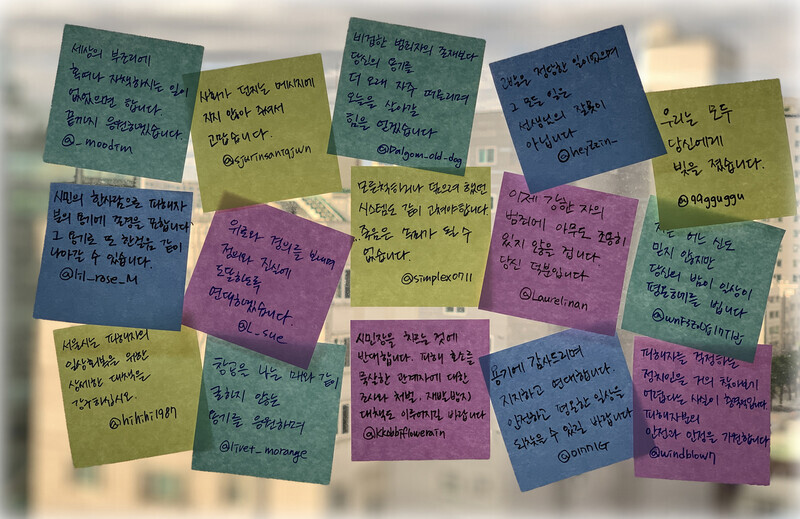 세상의 부조리에
혹여나 자책하시는 일이
없었으면 합니다
끝까지 응원하겠습니다.
@_moodtm
사회가 던지는 메시지에
지지 않아 주셔서
고맙습니다.
@sjurinsanigjwn
비겁한 범죄자의 존재보다
당신의 용기를
더 오래 자주 떠올리며
오늘을 살아갈
힘을 얻겠습니다.
@Dalgom_old_dog
고발은 정당한 일이었으며
그 모든 일은
선생님의 잘못이
아닙니다
@heyzzin_
우리는 모두
당신에게
빚을 졌습니다.
@99gguggu
시민의 한사람으로 피해자
분의 용기에 존경을 표합니다
그 용기로 또 한걸음 같이
나아갈 수 있습니다.
@lil_rose_M
위로와 정의를 보내며
정의와 진실에
도달하도록
연대하겠습니다.
@L_sue
못하거나 덮으려 했던
시스템도 같이 고쳐야합니다.
죽음은 속죄가 될 수
없습니다.
@simplex0711
이제 강한 자의
범죄에 아무도 조용히
있지 않을 겁니다
당신 덕분입니다
@Laurelinan
어느 신도
믿지 않지만
당신의 밤이 일상이
평온하기를 빕니다
서울시는 피해자의
일상회복을 위한
상세한 대책을
강구하십시오.
@hihihi1987
창공을 나는 매와 같이
굴하지 않는
용기를 응원하며
@livet_morange
시민장을 치르는 것에
반대합니다. 피해 호소를
묵살한 관계자에 대한
조사와 처벌, 재발방지
대책도 이루어지길 바랍니다
@kkobbiflowerain
용기에 감사드리며
지지하고 연대합니다.
안전하고 평온한 일상을
되찾을 수 있길 바랍니다
@OINNIG
피해자를 걱정하는
정치인을 거의 찾아보기
어렵다는 사실이 충격적입니다
피해자분의
안전과 안정을 기원합니다
@windblown7